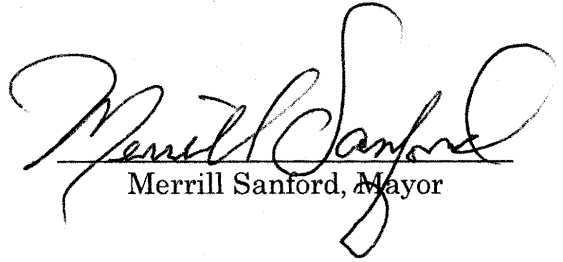 Merrill Sanford
Merrill Sanford, Mayor